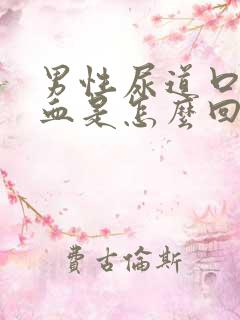 男性尿道口
血是怎麼回
費古倫斯